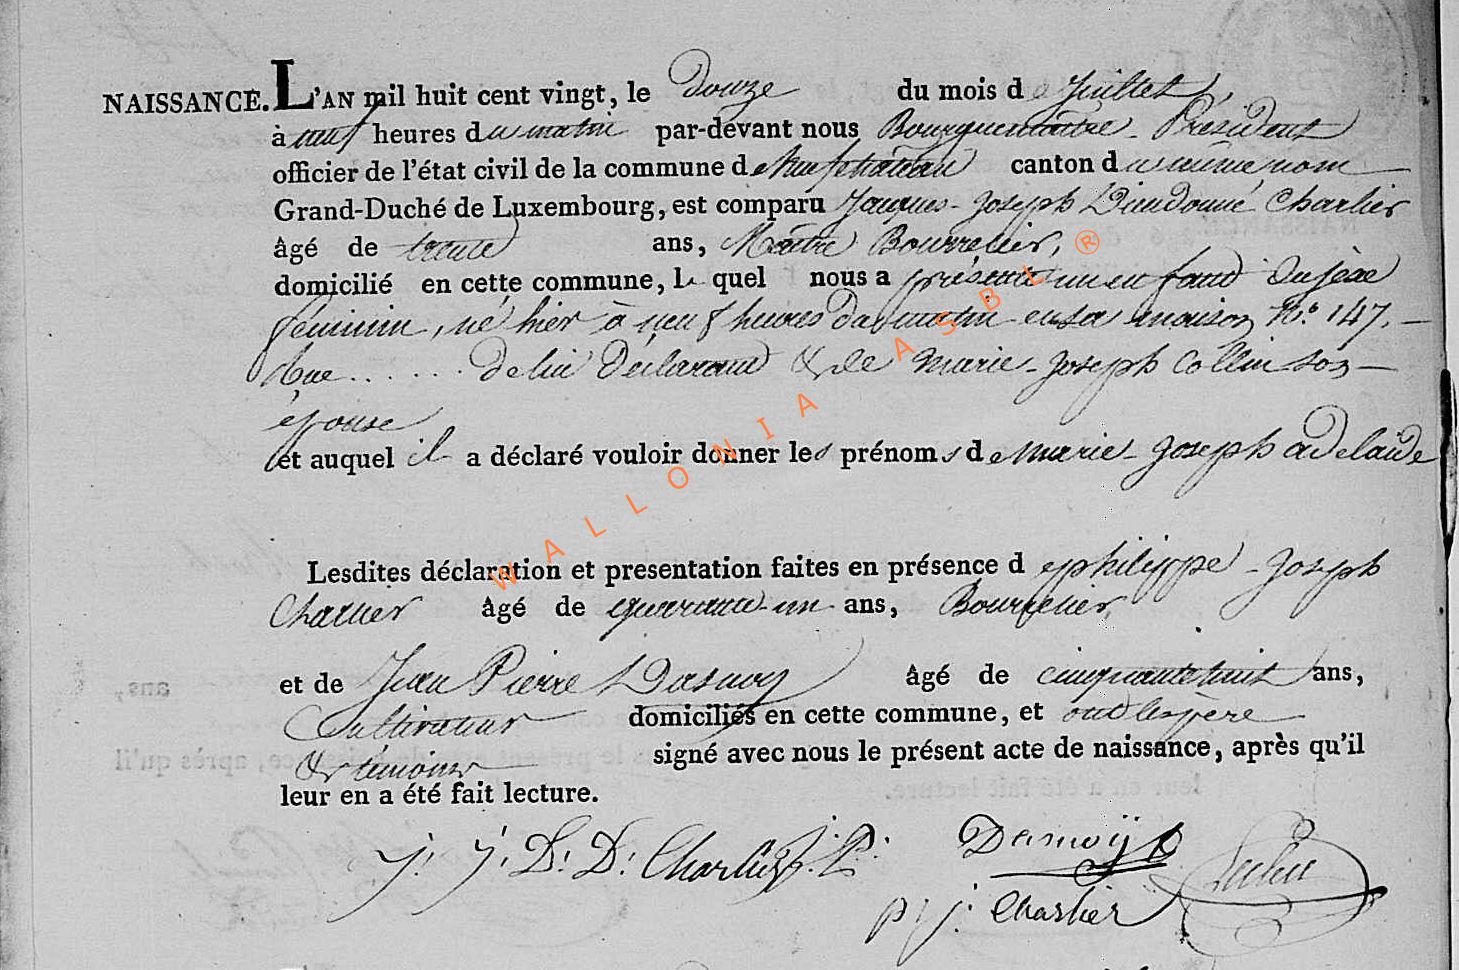 NAISSANCE. L'AN mil huit cent vingt, le douze du mois de Juillet,
à neuf heures du matin par-devant nous Bourguemaitre Président
officier de l'état civil de la commune de Neufchateau canton du même nom
Grand-Duché de Luxembourg, est comparu Jacques-Joseph Dieudonné Charlier
âgé de trente ans, Maitre Bourrelier,
domicilié en cette commune, Le quel nous a présenté un enfant du sexe
féminin, né hier à neuf heures du matin en sa maison N.° 147.
Rue...... de lui Déclarant & de Marie-Joseph Collin son
épouse
et auquel il a déclaré vouloir donner les prénoms de Marie-Joseph adelaide
Lesdites déclaration et presentation faites en présence de philippe-Joseph
Charlier âgé de quarante-un ans, Bourrelier,
et de Jean Pierre Dasnoy âgé de cinquante huit ans,
Cultivateur domiciliés en cette commune, et ont les père
& témoins signé avec nous le présent acte de naissance, après qu'il
leur en a été fait lecture.
J. J. D. D. Charlier J. P. Dasnoÿ
p j. Charlier
WALLONIA ASBL ®